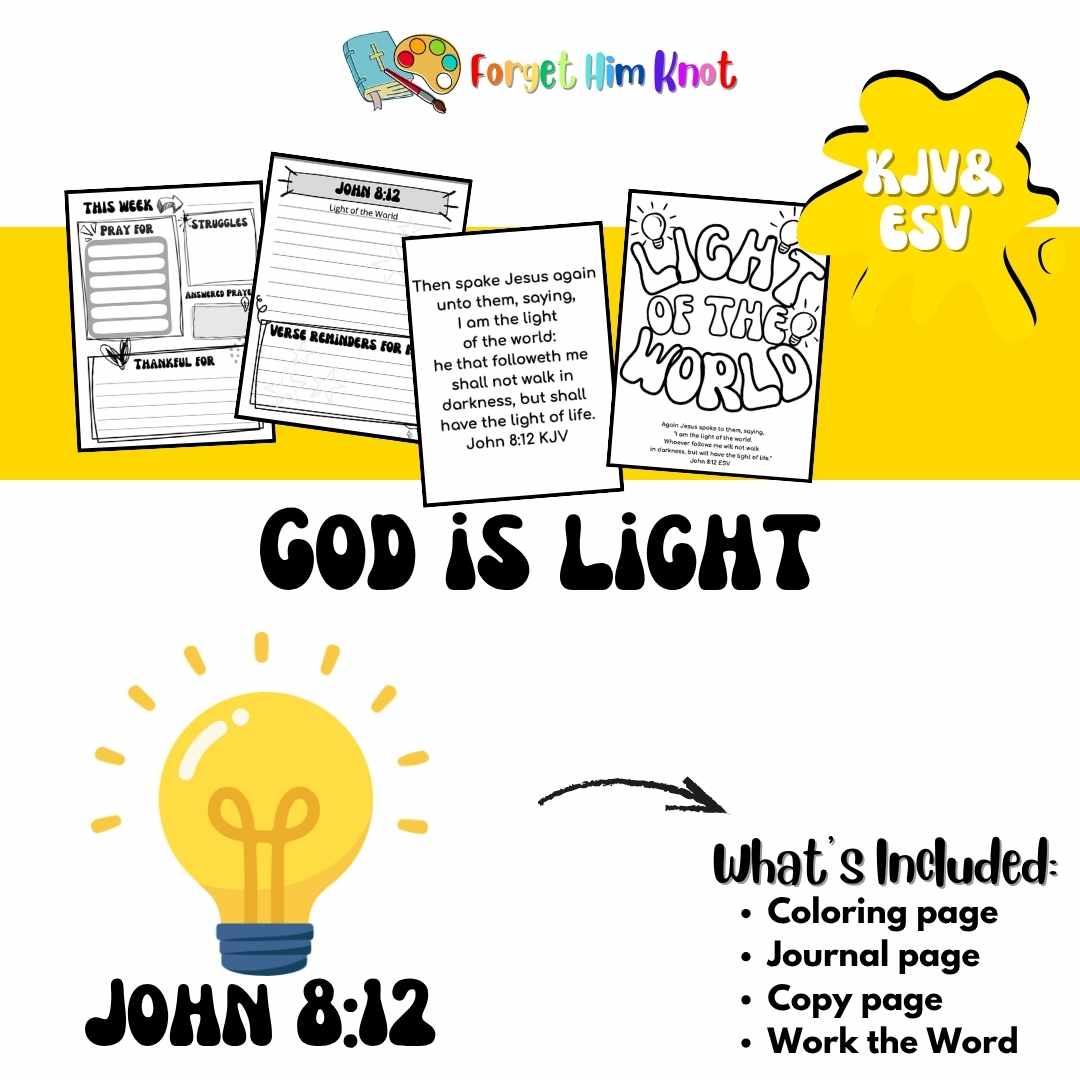 Forget Him Knot
KJV&
ESV
THIS WEEK
PRAY FOR
STRUGGLES
ANSWERED
THANKFUL FOR
JOHN 8:12
Light of the World
VERSE REMINDERS FOR
Then spoke Jesus again
unto them, saying,
I am the light
of the world:
he that followeth me
shall not walk in
darkness, but shall
have the light of life.
John 8:12 KJV
LIGHT
OF THE
WORLD
Again Jesus spoke to them, saying,
"I am the light of the world.
Whoever follows me will not walk
in darkness, but will have the light of life."
John 8:12 ESV
GOD iS LiGHT
JOHN 8:12
What's Included:
• Coloring page
• Journal page
• Copy page
• Work the Word